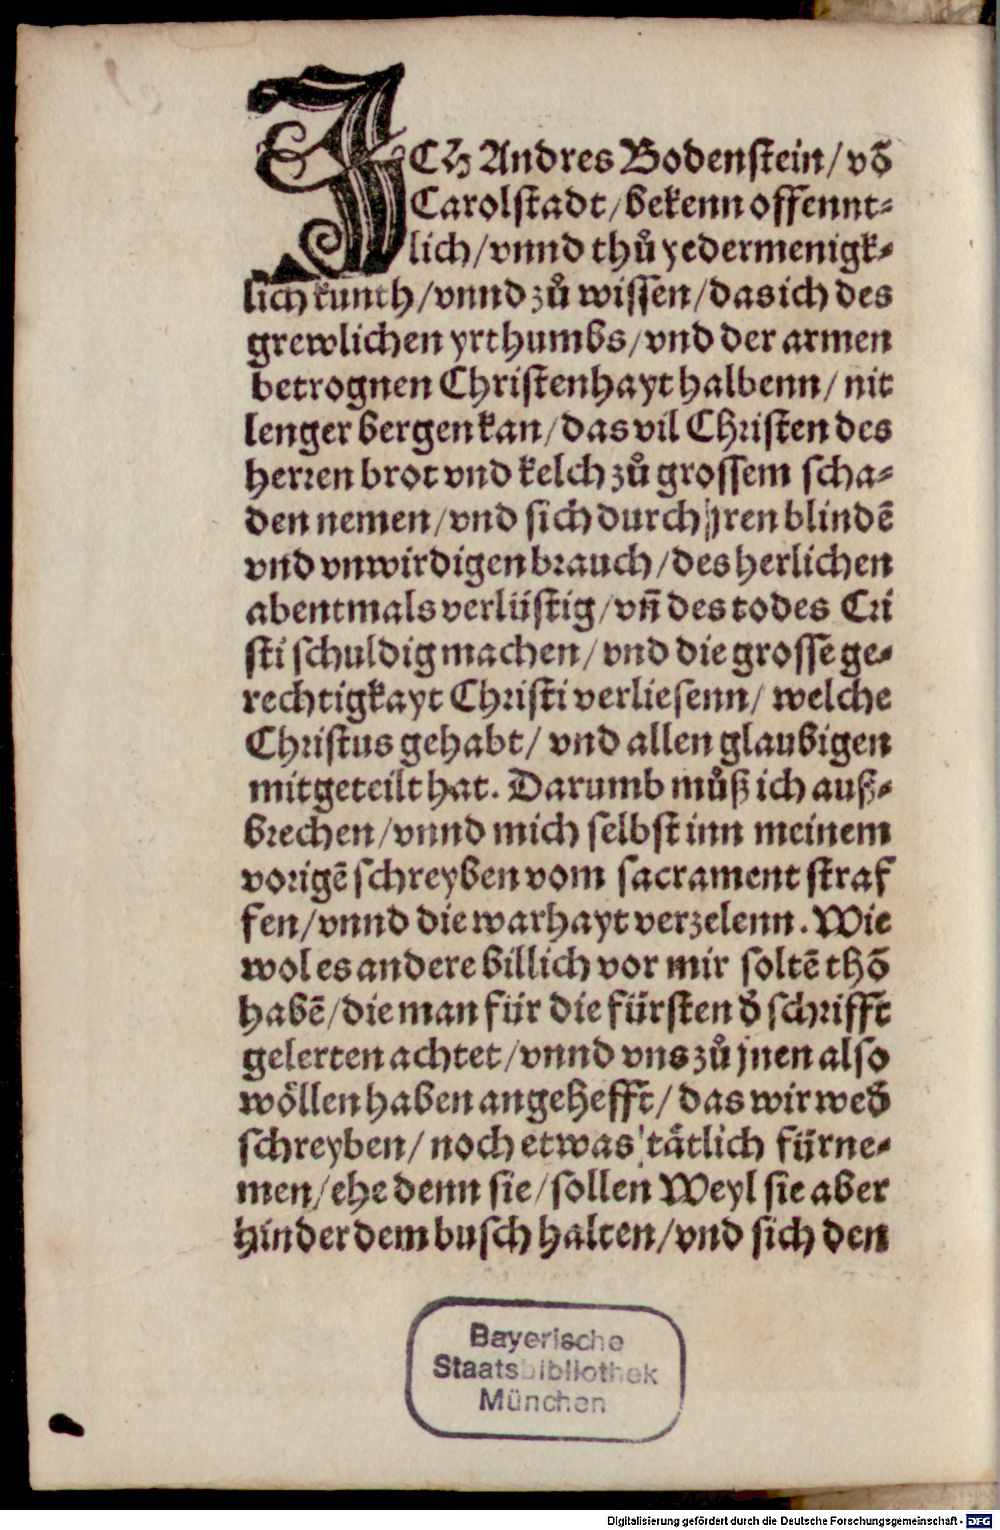 JCH Andres Bodenstein/ võ
Carolstadt/ bekenn offennt⸗
lich/ vnnd thů yedermenigk⸗
lich kunth/ vnnd zů wissen/ das ich des
grewlichen yrthumbs/ vnd der armen
betrognen Christenhayt halbenn/ nit
lenger bergen kan/ das vil Christen des
herren brot vnd kelch zů grossem scha⸗
den nemen/ vnd sich durch jren blindẽ
vnd vnwirdigen brauch/ des herlichen
abentmals verlüstig/ vñ des todes Cri
sti schuldig machen/ vnd die grosse ge⸗
rechtigkayt Christi verliesenn/ welche
Christus gehabt/ vnd allen glaubigen
mitgeteilt hat. Darumb můß ich auß⸗
brechen/ vnnd mich selbst inn meinem
vorigẽ schreyben vom sacrament straf
fen/ vnnd die warhayt verzelenn. Wie
wol es andere billich vor mir soltẽ thõ
habẽ/ die man für die fürsten d̕ schrifft
gelerten achtet/ vnnd vns zů jnen also
wöllen haben angehefft/ das wir wed̕
schreyben/ noch etwas tätlich fürne⸗
men/ ehe denn sie/ sollen Weyl sie aber
hinder dem busch halten/ vnd sich den
Bayerische
Staatsbibliothek
München
Digitalisierung gefördert durch die Deutsche Forschungsgemeinschaft - DFG